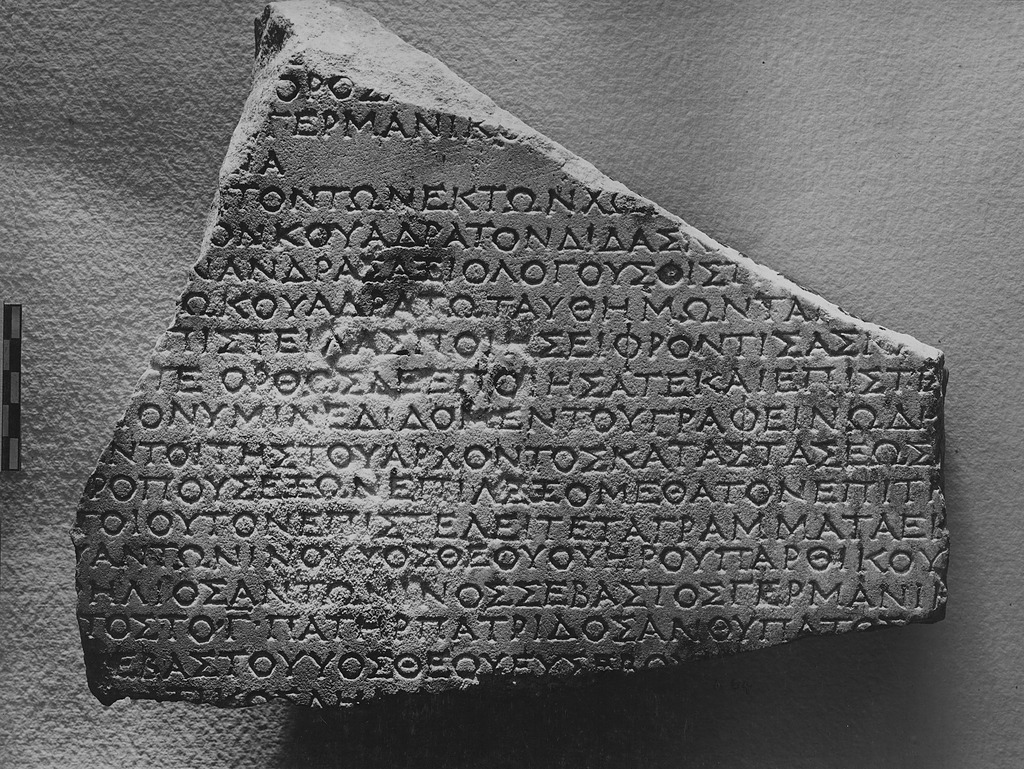 ΟΡΘΩ
ΓΕΡΜΑΝΙΚ
ΙΑ
ΤΟΝΤΩΝΕΚΤΩΝΧΩ
ΟΝΚΟΥΑΔΡΑΤΟΝΔΙΔΑΣ
ΑΝΔΡΑΣΑΞΙΟΛΟΓΟΥΣΟΙΣΤΙ
ΩΚΟΥΑΔΡΑΤΩΤΑΥΘΗΜΩΝΤΑ
ΠΙΣΤΕΙΛΑΣΠΟΙΗΣΕΙΦΡΟΝΤΙΣΑΣΚΑ
ΤΕΟΡΘΩΣΔΕΕΠΟΙΗΣΑΤΕΚΑΙΕΠΙΣΤΕ
ΟΝΥΜΙΝΕΔΙΔΟΜΕΝΤΟΥΓΡΑΦΕΙΝΩΔΙ
ΝΤΟΙΤΗΣΤΟΥΑΡΧΟΝΤΟΣΚΑΤΑΣΤΑΣΕΩΣ
ΡΟΠΟΥΣΕΞΩΝΕΠΙΛΕΞΟΜΕΘΑΤΟΝΕΠΙΤΗ
ΤΟΙΟΥΤΟΝΕΠΙΣΤΕΛΕΙΤΕΤΑΓΡΑΜΜΑΤΑΕΙ
ΑΝΤΩΝΙΝΟΥΥΟΣΘΕΟΥΟΥΗΡΟΥΠΑΡΘΙΚΟΥ
ΗΛΙΟΣΑΝΤΩΝΙΝΟΣΣΕΒΑΣΤΟΣΓΕΡΜΑΝΙΚ
ΤΟΣΤΟΓΠΑΤΗΡΠΑΤΡΙΔΟΣΑΝΘΥΠΑΤΟΣ
ΣΕΒΑΣΤΟΥΥΟΣΘΕΟΥΕΥΣΕΒΟΥ